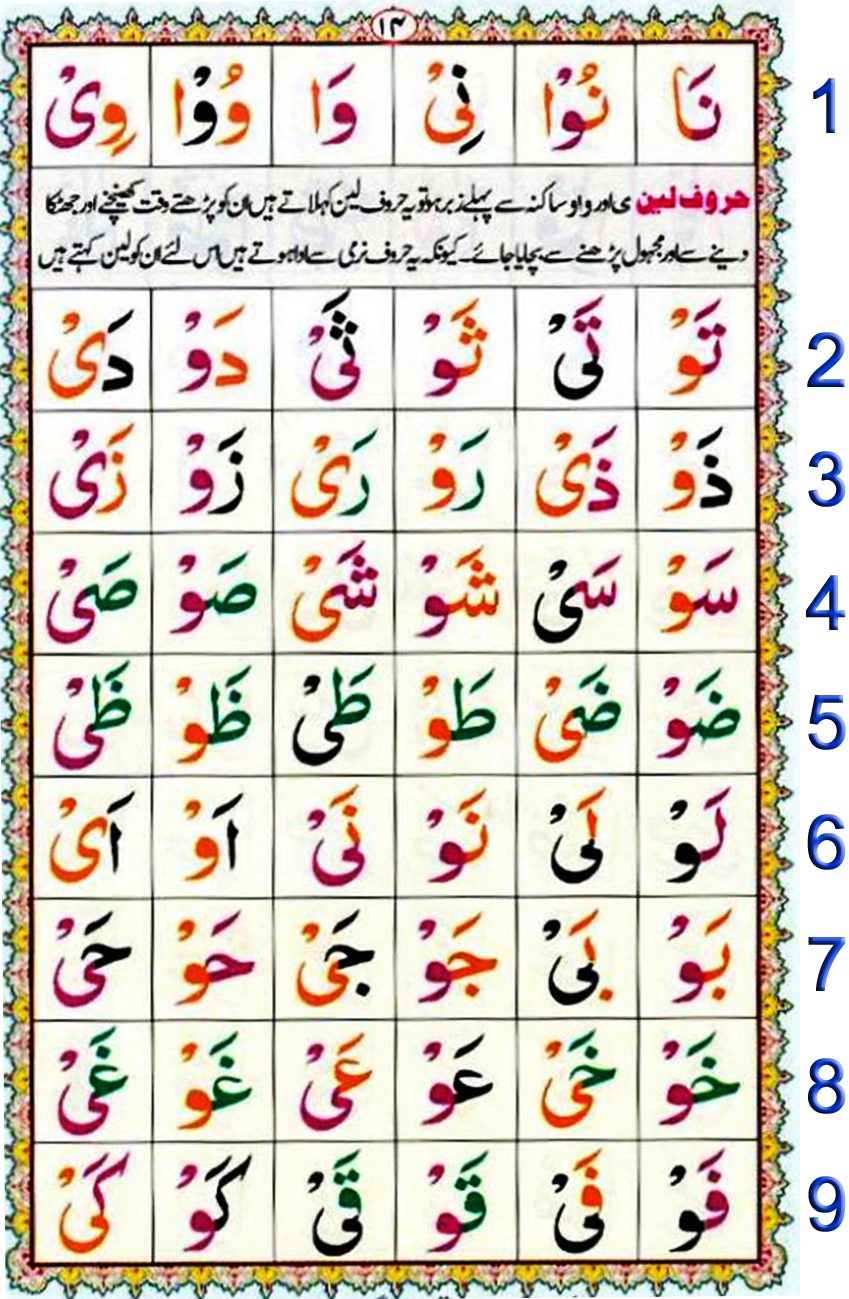 ۱۴
نَا نُوْا نِیْ وَا وُوْا وِیْ 1
حروف لین ی اور واو ساکنہ سے پہلے زبر ہو تو یہ حروف لین کہلاتے ہیں ان کو پڑھتے وقت کھینچنے اور جھٹکا
دینے سے اور مجہول پڑھنے سے بچایا جائے۔ کیونکہ یہ حروف نرمی سے ادا ہوتے ہیں اس لئے ان کو لین کہتے ہیں
تَوْ تَیْ ثَوْ ثَیْ دَوْ دَیْ 2
ذَوْ ذَیْ رَوْ رَیْ زَوْ زَیْ 3
سَوْ سَیْ شَوْ شَیْ صَوْ صَیْ 4
ضَوْ ضَیْ طَوْ طَیْ ظَوْ ظَیْ 5
لَوْ لَیْ نَوْ نَیْ اَوْ اَیْ 6
بَوْ بَیْ جَوْ جَیْ حَوْ حَیْ 7
خَوْ خَیْ عَوْ عَیْ غَوْ غَیْ 8
فَوْ فَیْ قَوْ قَیْ كَوْ كَیْ 9